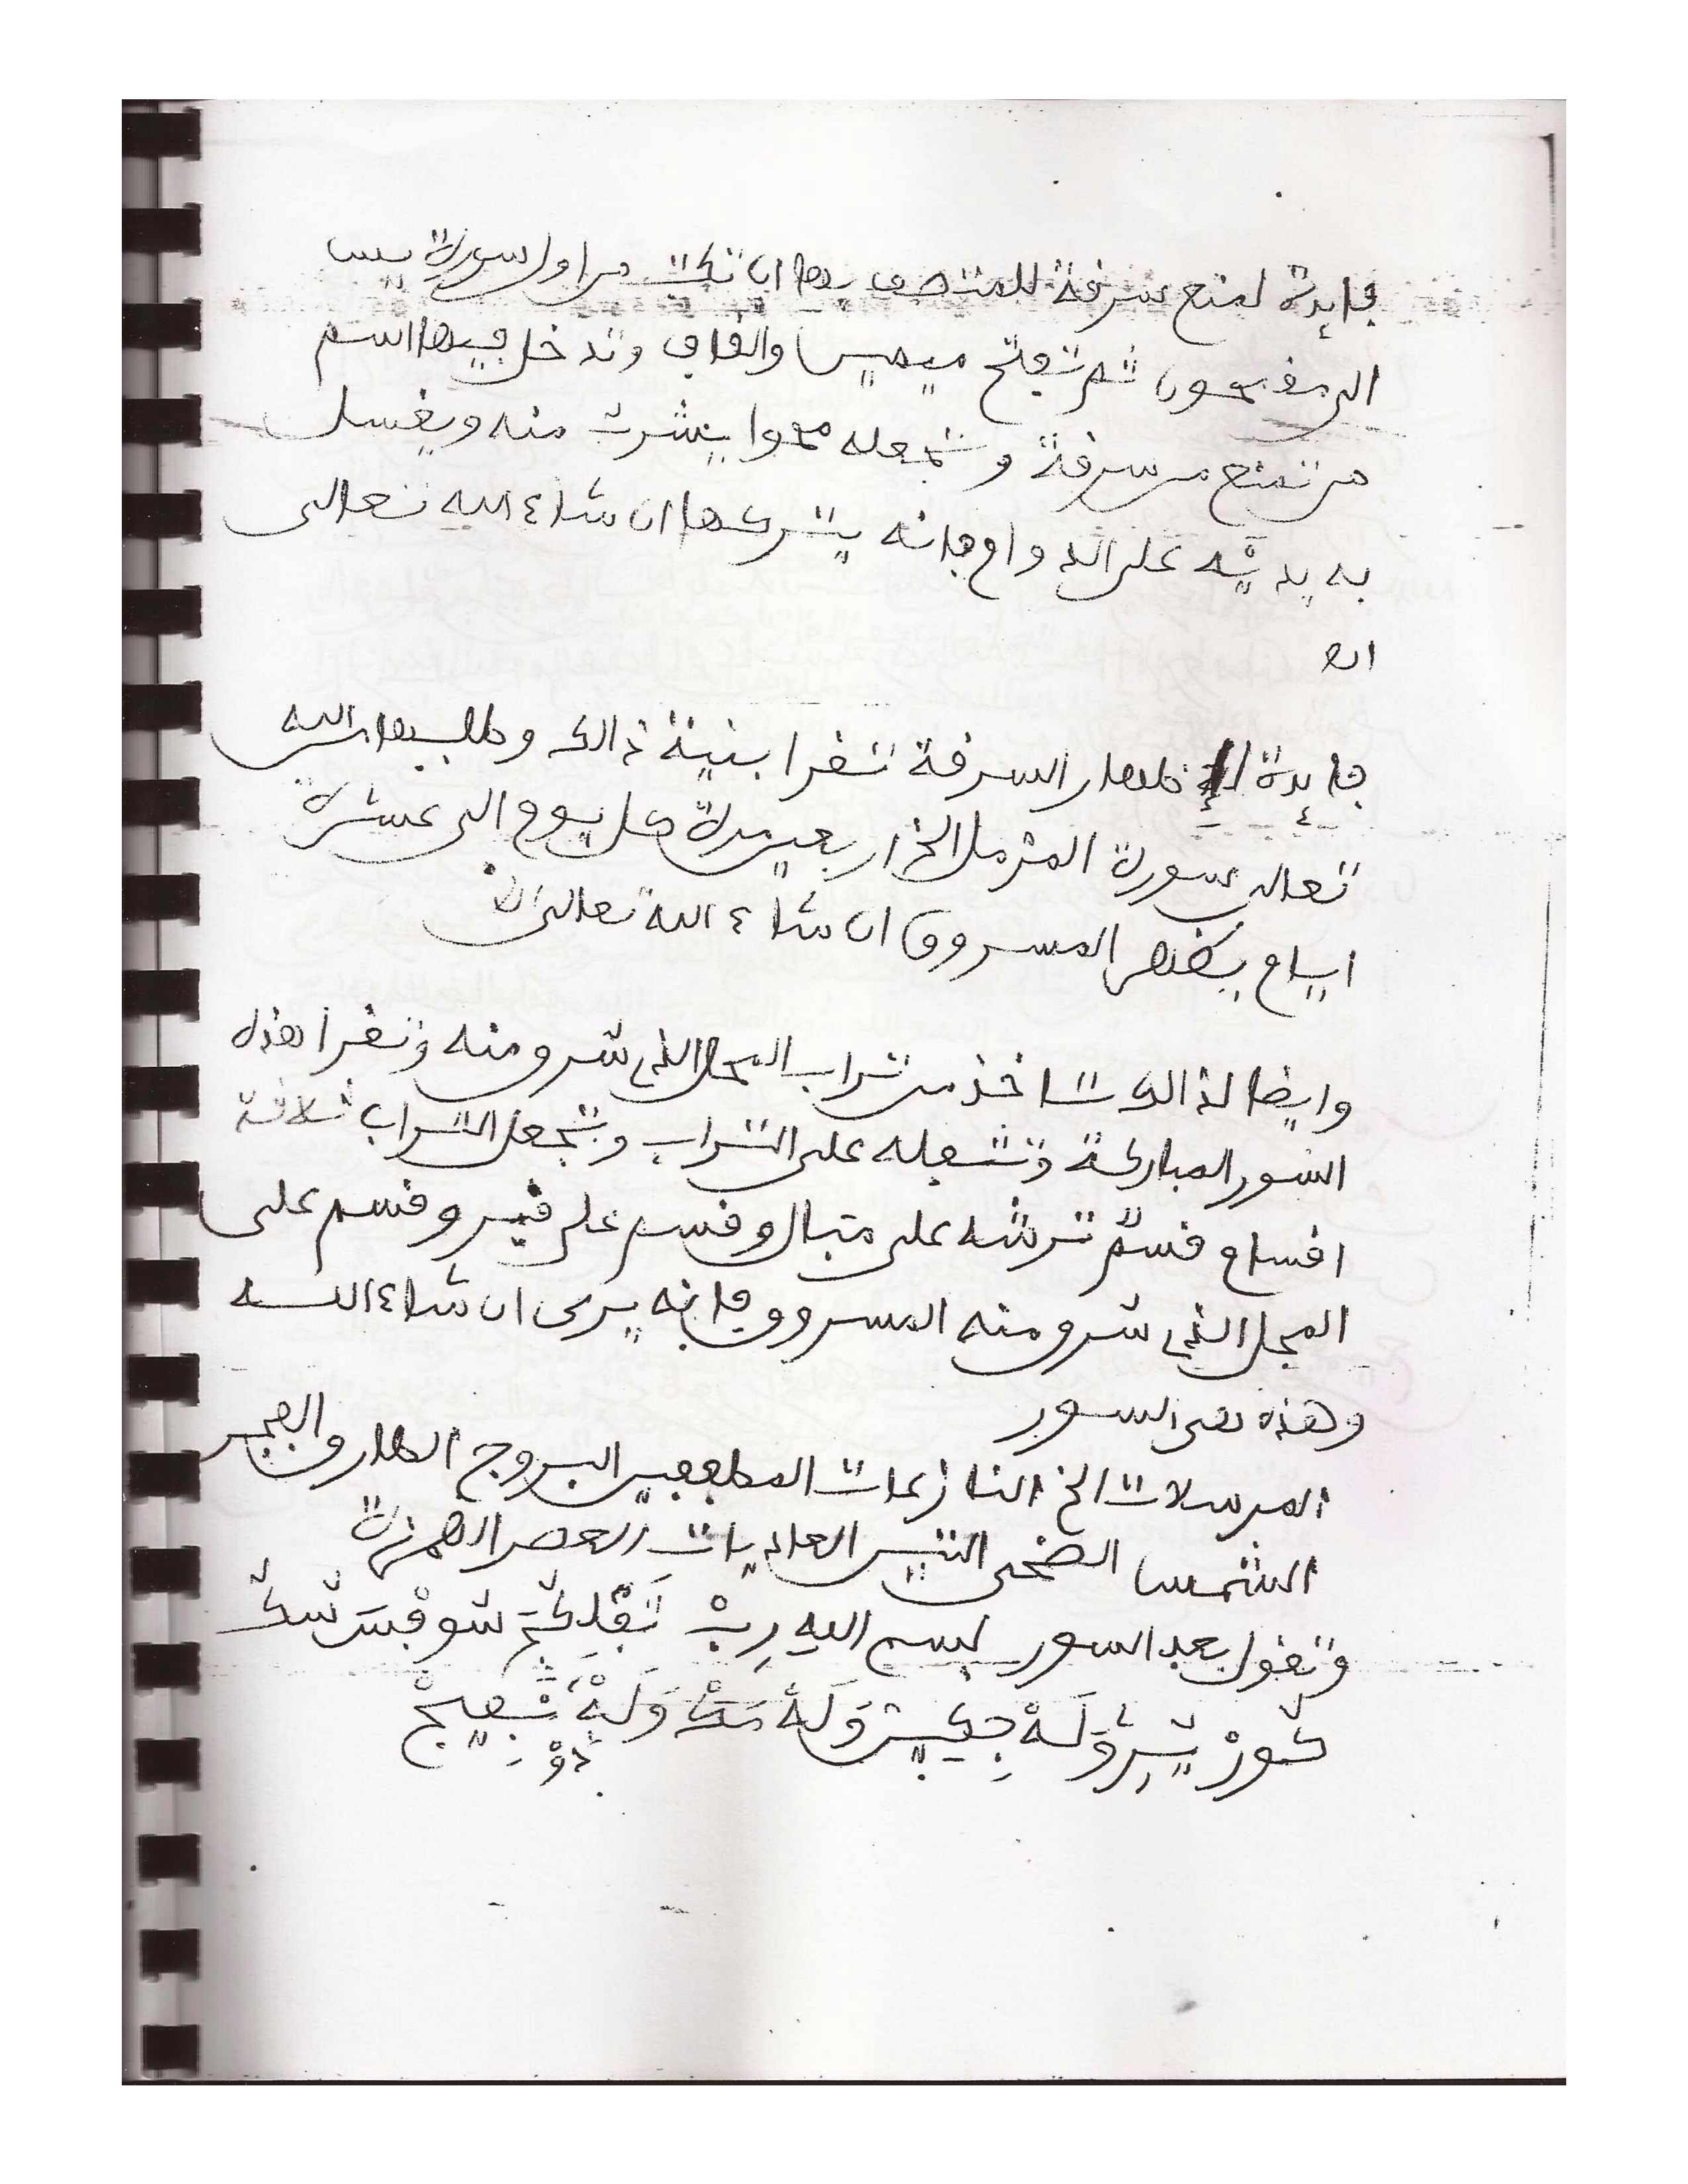 فايدة لمنع سرقة للمتصف بها ان تكتب من اول سورة يس
الى مقمحون ثم تفتح ميمين والقاف وتدخل فيها اسم
من تمنع من سرقة وتجعله محوا يشرب منه ويغسل
به يديه على الدوام فانه يتركها ان شاء الله تعالى
اه
فايدة لإظهار السرقة تقرا بنية ذالك وطلبها من الله
تعالى سورة المزمل الخ اربعين مرة كل يوم الى عشرة
ايام يظهر المسروق ان شاء الله تعالى
وايضا لذالك تاخذ من تراب المحل الذي سرق منه وتقرا هذه
السور المباركة وتتفله على التراب وتجعل التراب ثلاثة
اقسام قسم ترشه على متبال وقسم على قبر وقسم على
المحل الذي سرق منه المسروق فانه يرى ان شاء الله
وهذه هى السور
المرسلات الخ النازعات المطففين البروج الطارق والفجر
الشمس الضحى التين العاديات العصر الهمزة
وتقول بعد السور بسم الله